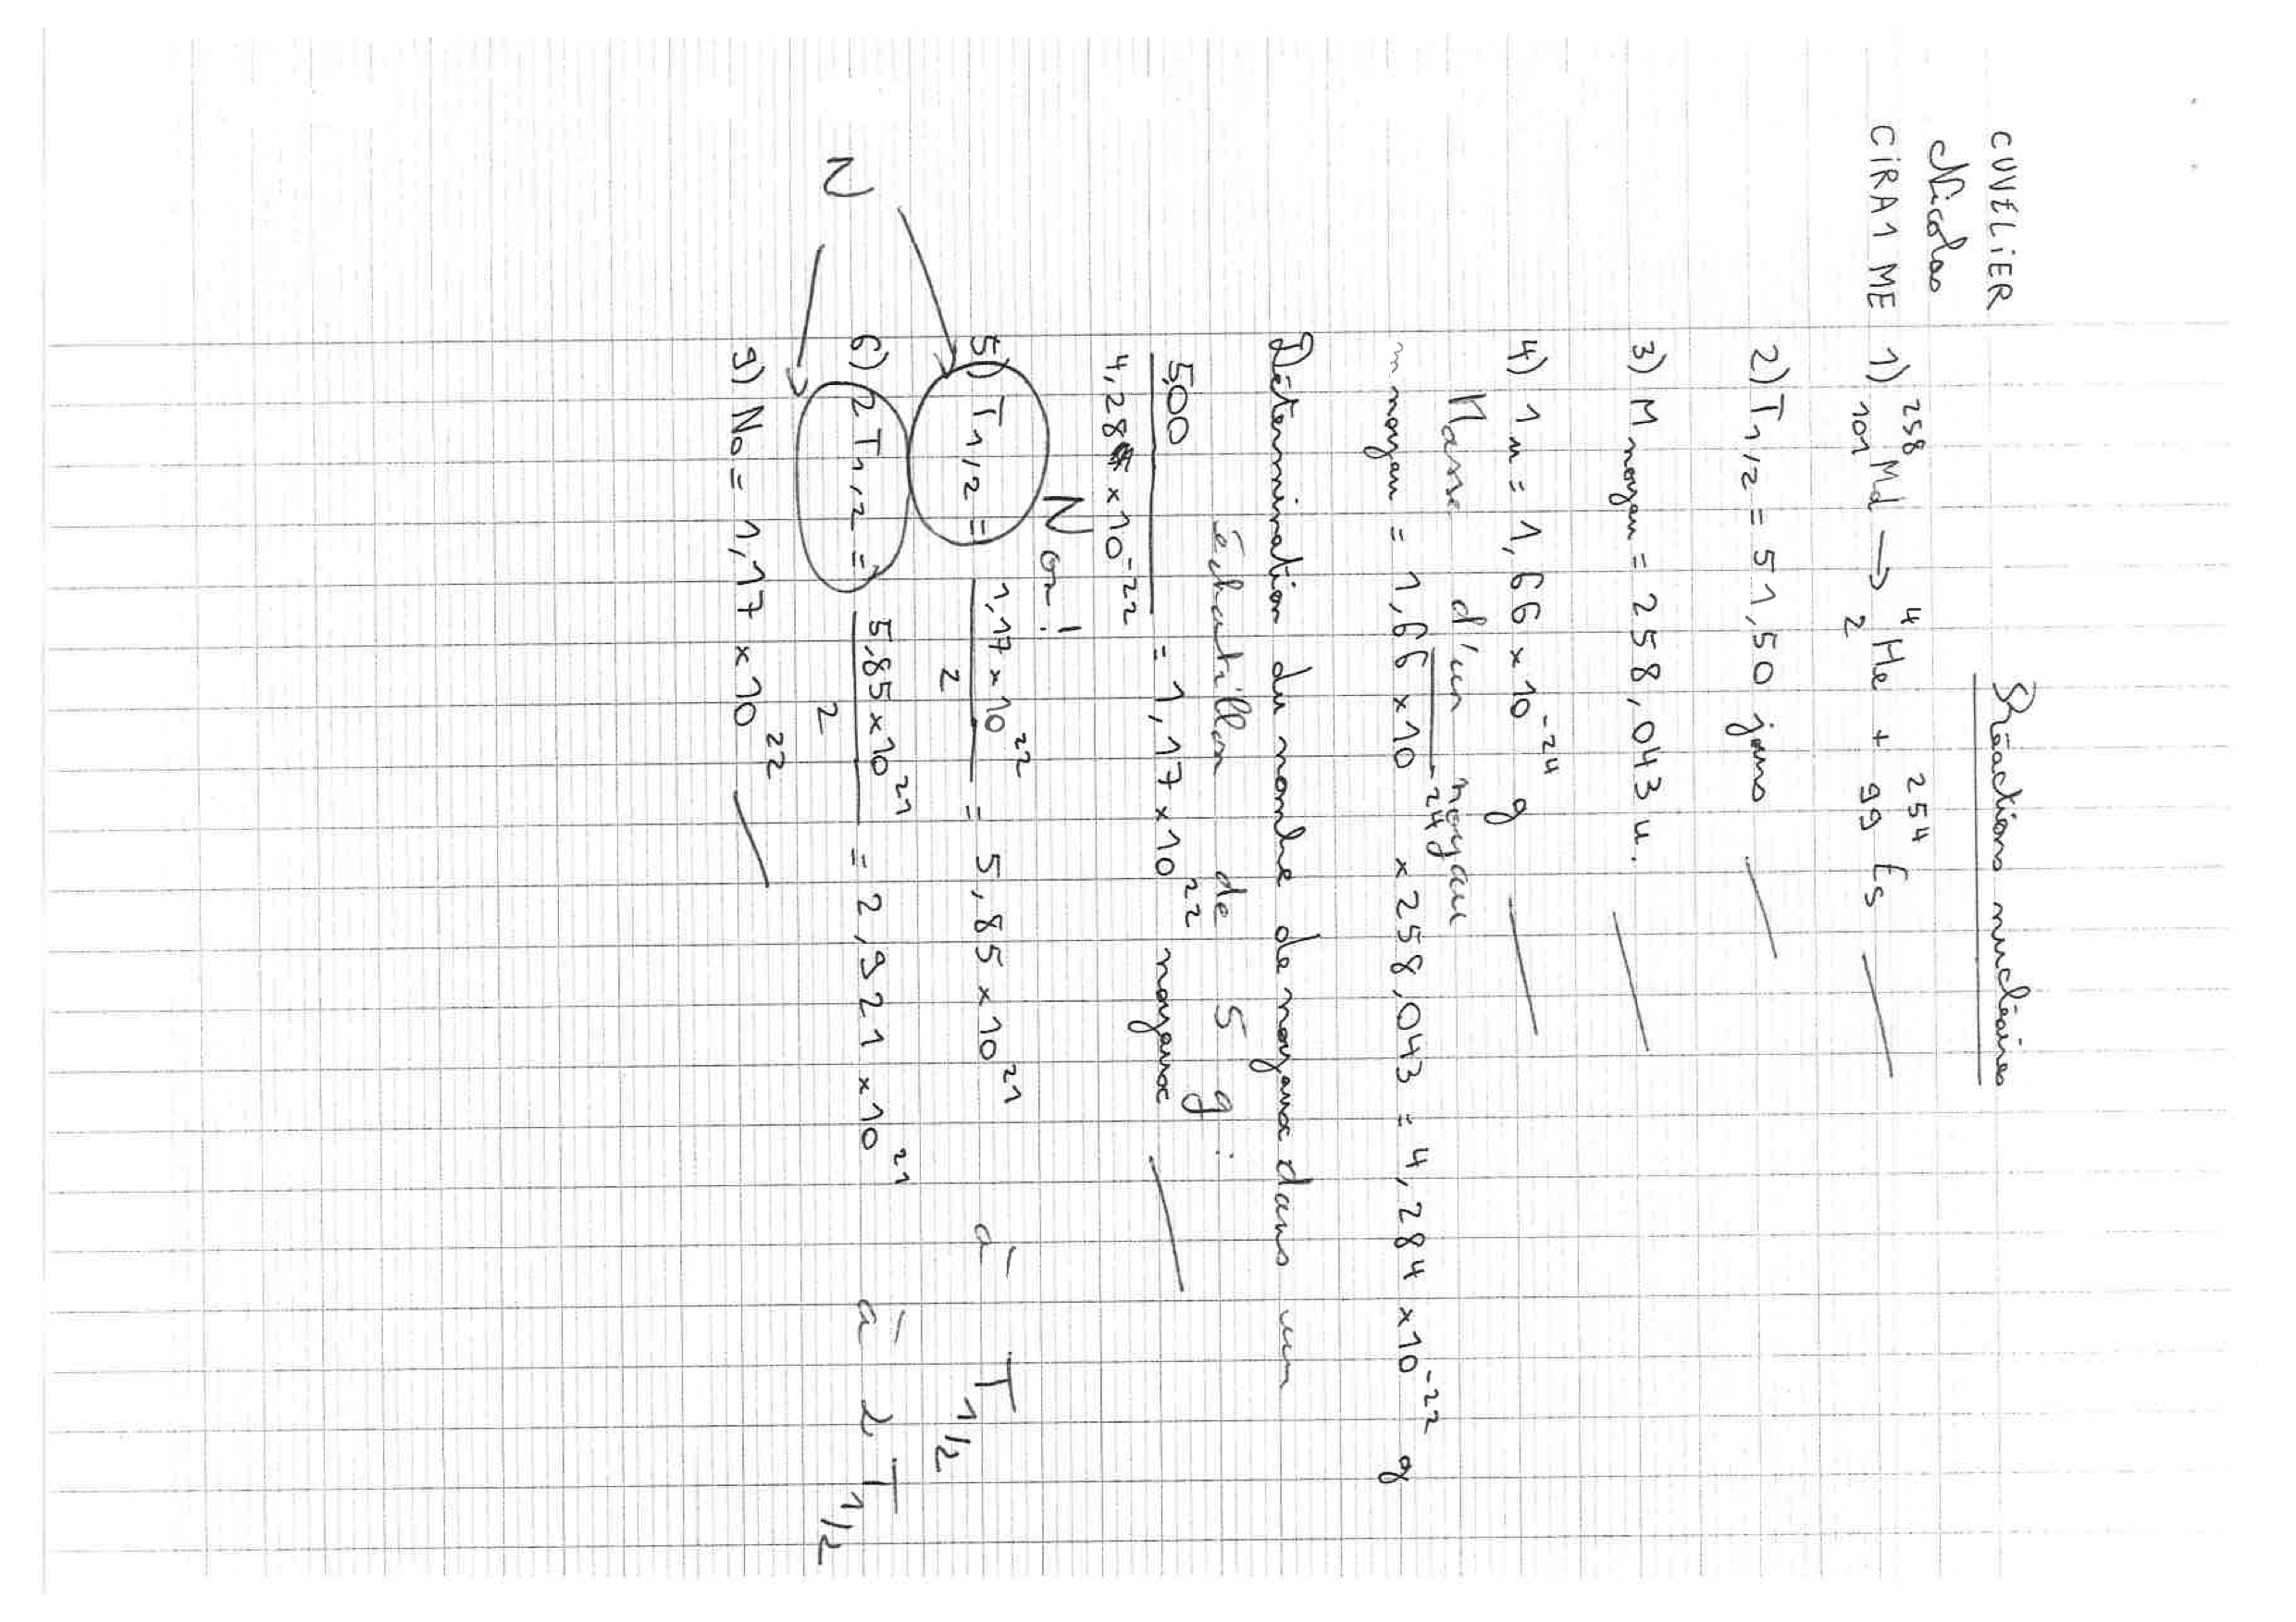 CUVELIER
Nicolas
CiRA1 ME
Réactions nucléaires
1) ²⁵⁸₁₀₁Md → ⁴₂He + ²⁵⁴₉₉Es
2) T1/2 = 51,50 jours
3) M noyau = 258,043 u.
4) 1u = 1,66 x 10⁻²⁴ g
Masse d'un noyau
m noyau = 1,66 x 10⁻²⁴ x 258,043 = 4,284 x 10⁻²² g
Détermination du nombre de noyaux dans un
échantillon de 5 g :
5,00 / 4,284 x 10⁻²² = 1,17 x 10²² noyaux
Non !
5) T1/2 = 1,17 x 10²² / 2 = 5,85 x 10²¹ à T1/2
N
6) 2 T1/2 = 5,85 x 10²¹ / 2 = 2,921 x 10²¹ à 2T1/2
9) N₀ = 1,17 x 10²²